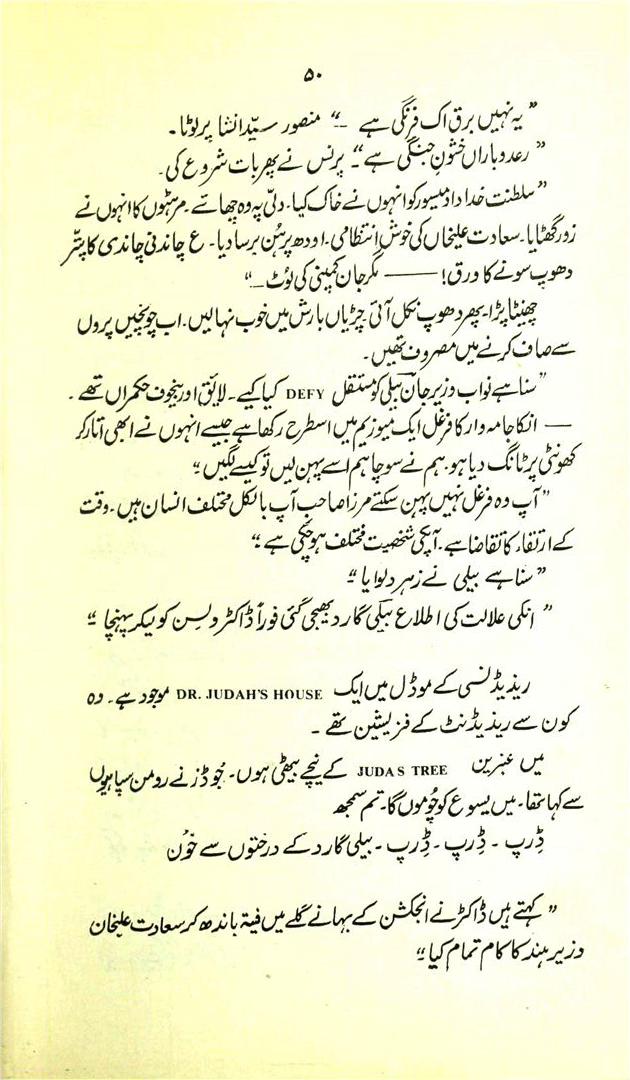 ۵۰
” یہ نہیں برق اک فرنگی ہے —“ منصور سیّد انشا پر لوٹا۔
” رعد و باراں خشونِ جنگی ہے“۔ پرنس نے پھر بات شروع کی۔
”سلطنت خداداد میسور کو انہوں نے خاک کیا۔ دلّی پہ وہ چھا سے۔ مرہٹوں کا انہوں نے
زور گھٹایا۔ سعادت علیخاں کی خوش انتظامی۔ اودھ پر ہُن برسا دیا۔ ع چاندنی چاندی کا پتّر
دھوپ سونے کا ورق! —— مگر جان کمپنی کی لوُٹ —“
چھینٹا پڑا۔ پھر دھوپ نکل آئی۔ چڑیاں بارش میں خوب نہا لیں۔ اب چونچیں پروں
سے صاف کرنے میں مصروف تھیں۔
”سنا ہے نواب وزیر جان بیلی کو مستقل DEFY کیا کیے۔ لائق اور بیخوف حکمراں تھے۔
— انکا جامہ وار کا فرغل ایک میوزیم میں اسطرح رکھا ہے جیسے انہوں نے ابھی اتار کر
کھونٹی پر ٹانگ دیا ہو۔ ہم نے سوچا ہم اسے پہن لیں تو کیسے لگیں“
”آپ وہ فرغل نہیں پہن سکتے مرزا صاحب آپ بالکل مختلف انسان ہیں۔ وقت
کے ارتقاء کا تقاضا ہے۔ آپکی شخصیت مختلف ہو چکی ہے“
”سنا ہے بیلی نے زہر دلوایا“
” انکی علالت کی اطلاع بیلی گارد بھیجی گئی فوراً ڈاکٹر ولسن کو لیکر پہنچا“
ریذیڈنسی کے موڈل میں ایک DR. JUDAH'S HOUSE موجود ہے۔ وہ
کون سے ریذیڈنٹ کے فزیشین تھے۔
میں عنبرین JUDAS TREE کے نیچے بیٹھی ہوں۔ جُوڈز نے رومن سپاہیوں
سے کہا تھا۔ میں یسوع کو چُوموں گا۔ تم سمجھ
ڈرپ ۔ ڈرپ ۔ ڈرپ ۔ بیلی گارد کے درختوں سے خُون
” کہتے ہیں ڈاکٹر نے انجکشن کے بہانے گلے میں فیتہ باندھ کر سعادت علیخان
وزیر ہند کا کام تمام کیا“